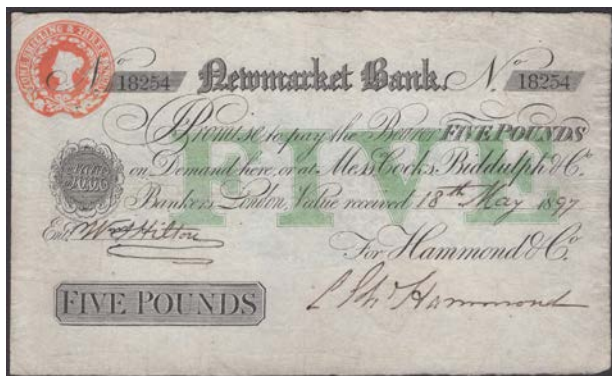 ONE SHILLING & THREE PENCE
No 18254 Newmarket Bank. No 18254
I Promise to pay the Bearer FIVE POUNDS
on Demand here, or at Messrs Cocks, Biddulph & Co.
Bankers London, Value received 18th May 1897
FIVE
Entd. Hilton
For Hammond & Co.
FIVE POUNDS
Hammond